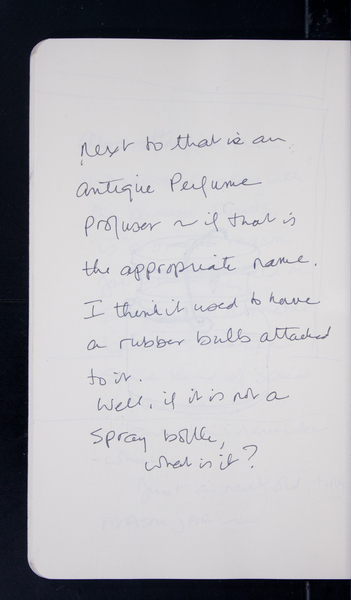 Next to that is an
antique Perfume
Profuser ~ if that is
the appropriate name.
I think it used to have
a rubber bulb attached
to it.
Well, if it is not a
Spray bottle,
what is it?